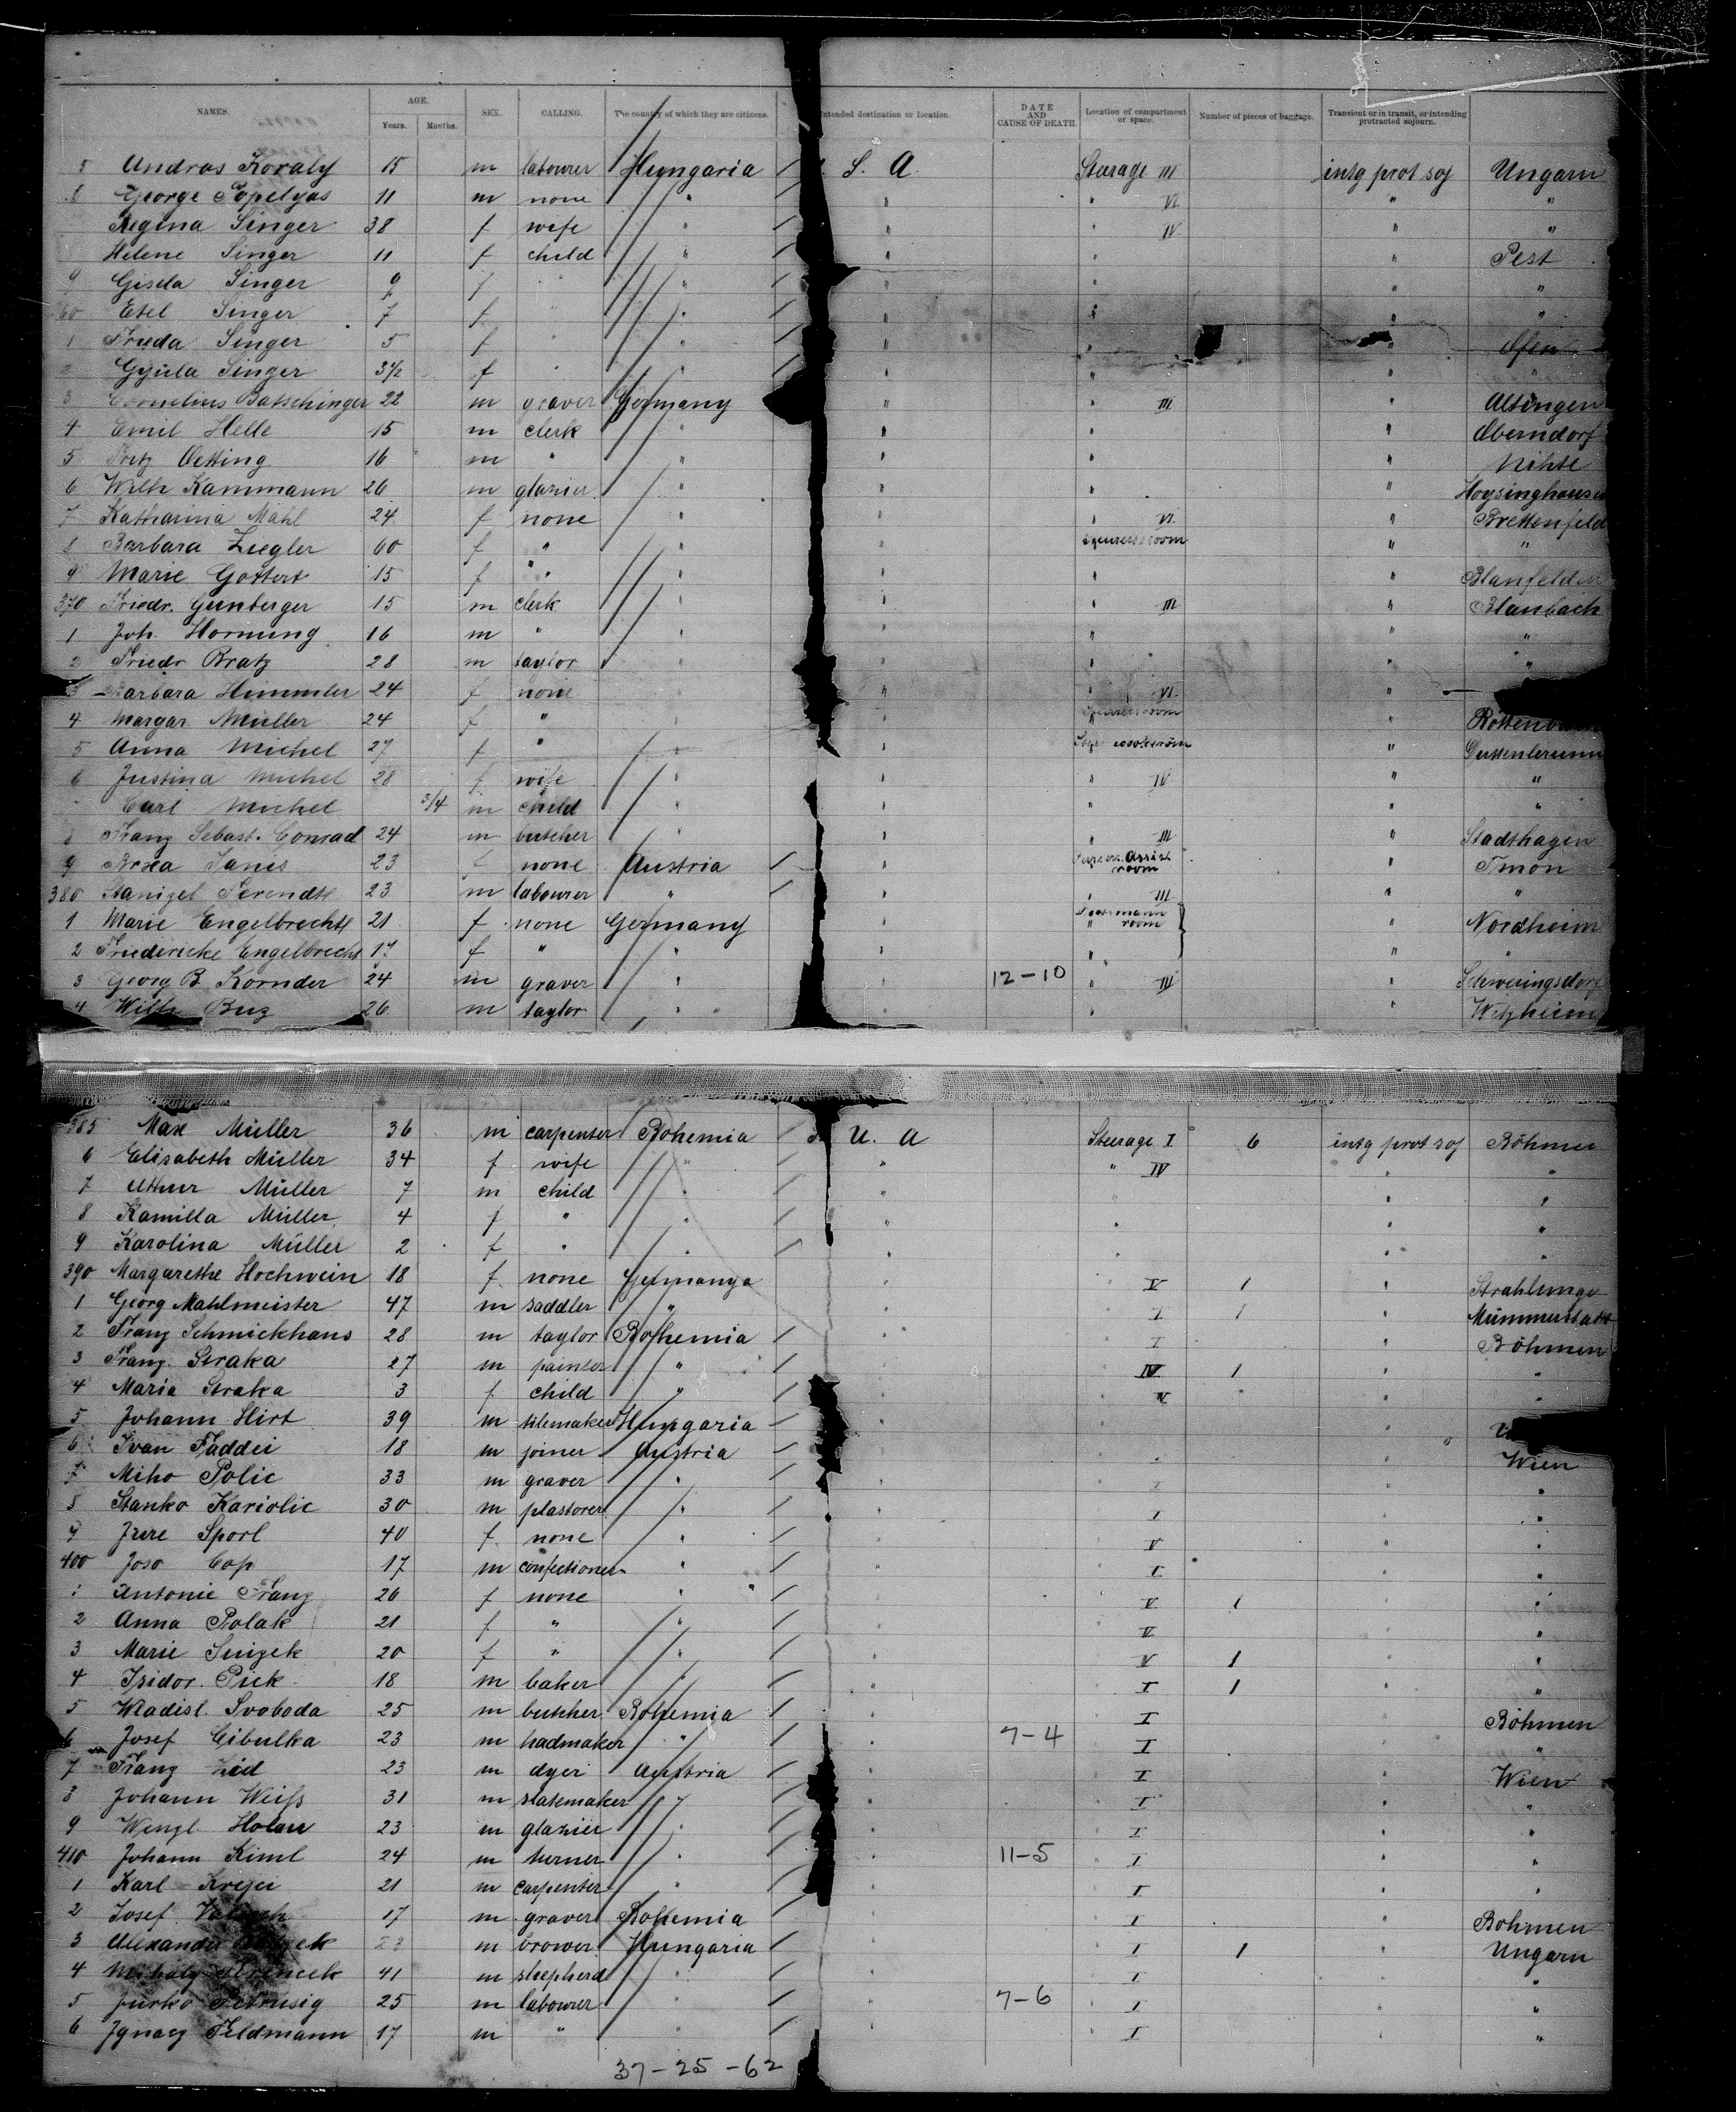 NAMES. AGE. Years. Months. SEX. CALLING. The country of which they are citizens. Intended destination or location. DATE AND CAUSE OF DEATH. Location of compartment or space. Number of pieces of baggage. Transient or in transit, or intending protracted sojourn.
5 Andras Koraly 15 m labourer Hungaria S. A. Steerage III intg prot soj Ungarn
8 George Popelyas 11 m none " " " VI " "
Regina Singer 38 f wife " " " IV " "
Helene Singer 11 f child " " " " Pest
9 Gisela Singer 9 f " " " " " "
60 Etel Singer 7 f " " " " " "
1 Frieda Singer 5 f " " " " " Ofen
2 Gyula Singer 3½ f " " " " " "
3 Cornelius Batschinger 22 m graver Germany " " III " Altingen
4 Emil Helle 15 m clerk " " " " Oberndorf
5 Fritz Oetting 16 m " " " " "
6 Wilh Kammann 26 m glazier " " " " Hoysinghausen
7 Katharina Mahl 24 f none " " " VI " Brettenfeld
8 Barbara Ziegler 60 f " " " room " "
9 Marie Gottert 15 f " " " " " Blanfelden
370 Friedr. Gunberger 15 m clerk " " " III " Blaubach
1 Joh. Hornung 16 m " " " " " "
2 Friedr Bratz 28 m taylor " " " " "
3 Barbara Himmler 24 f none " " " VI "
4 Margar Müller 24 f " " " room
5 Anna Michel 27 f " " " "
6 Justina Michel 28 f wife " " " IV " "
Carl Michel 3/4 m child " " " " "
8 Franz Sebast. Conrad 24 m butcher " " " III " Stadthagen
9 Janes 23 f none Austria " Assist room " Tmon
380 23 m labourer " " " III " "
1 Marie Engelbrecht 21 f none Germany " room " Nordheim
2 Friedericke Engelbrecht 17 f " " " " " "
3 Georg B. Kornder 24 m graver " " 12-10 " III " Schweringsdorf
4 Wilh Buz 26 m taylor " " " " Welzheim
385 Max Müller 36 m carpenter Bohemia U. A Steerage I 6 intg prot soj Böhmen
6 Elisabeth Müller 34 f wife " " " IV " "
7 Arthur Müller 7 m child " " " " "
8 Kamilla Müller 4 f " " " " " "
9 Karolina Müller 2 f " " " " " "
390 Margarethe Hochwein 18 f none Germanya " " V 1 "
1 Georg Mahlmeister 47 m saddler " " " I 1 " Münnerstadt
2 Franz Schmickhans 28 m taylor Bohemia " I " Böhmen
3 Franz Straka 27 m painter " " IV 1 " "
4 Maria Straka 3 f child " " " IV " "
5 Johann Hirt 39 m tilemaker Hungaria " " "
6 Ivan Faddei 18 m joiner Austria " " " Wien
7 Miho Polic 33 m graver " " I " "
8 Stanko Kariolic 30 m plastorer " " I " "
9 Jure Sporl 40 f none " " V " "
400 Joso Cop 17 m confectioner " " I " "
1 Antonie Franz 26 f none " " V 1 " "
2 Anna Polak 21 f " " " V " "
3 Marie Snizek 20 f " " " V 1 " "
4 Isidor Pick 18 m baker " " I 1 " "
5 Wladisl. Svoboda 25 m butcher Bohemia " I " Böhmen
6 Josef Cibulka 23 m hadmaker " " 7-4 I " "
7 Franz Zid 23 m dyer Austria " I " Wien
8 Johann Weiß 31 m slatemaker " " I " "
9 Wenzl. Holan 23 m glazier " " I " "
410 Johann Kiml 24 m turner " " 11-5 I " "
1 Karl Krejci 21 m carpenter " " I " "
2 Josef 17 m graver Bohemia " I " Bohmen
3 Alexander 23 m brower Hungaria " I 1 " Ungarn
4 Mihaly 41 m shepherd " " I " "
5 Jurko Petrusig 25 m labourer " " 7-6 I " "
6 Jgnacz Feldmann 17 m " " " I " "
37-25-62